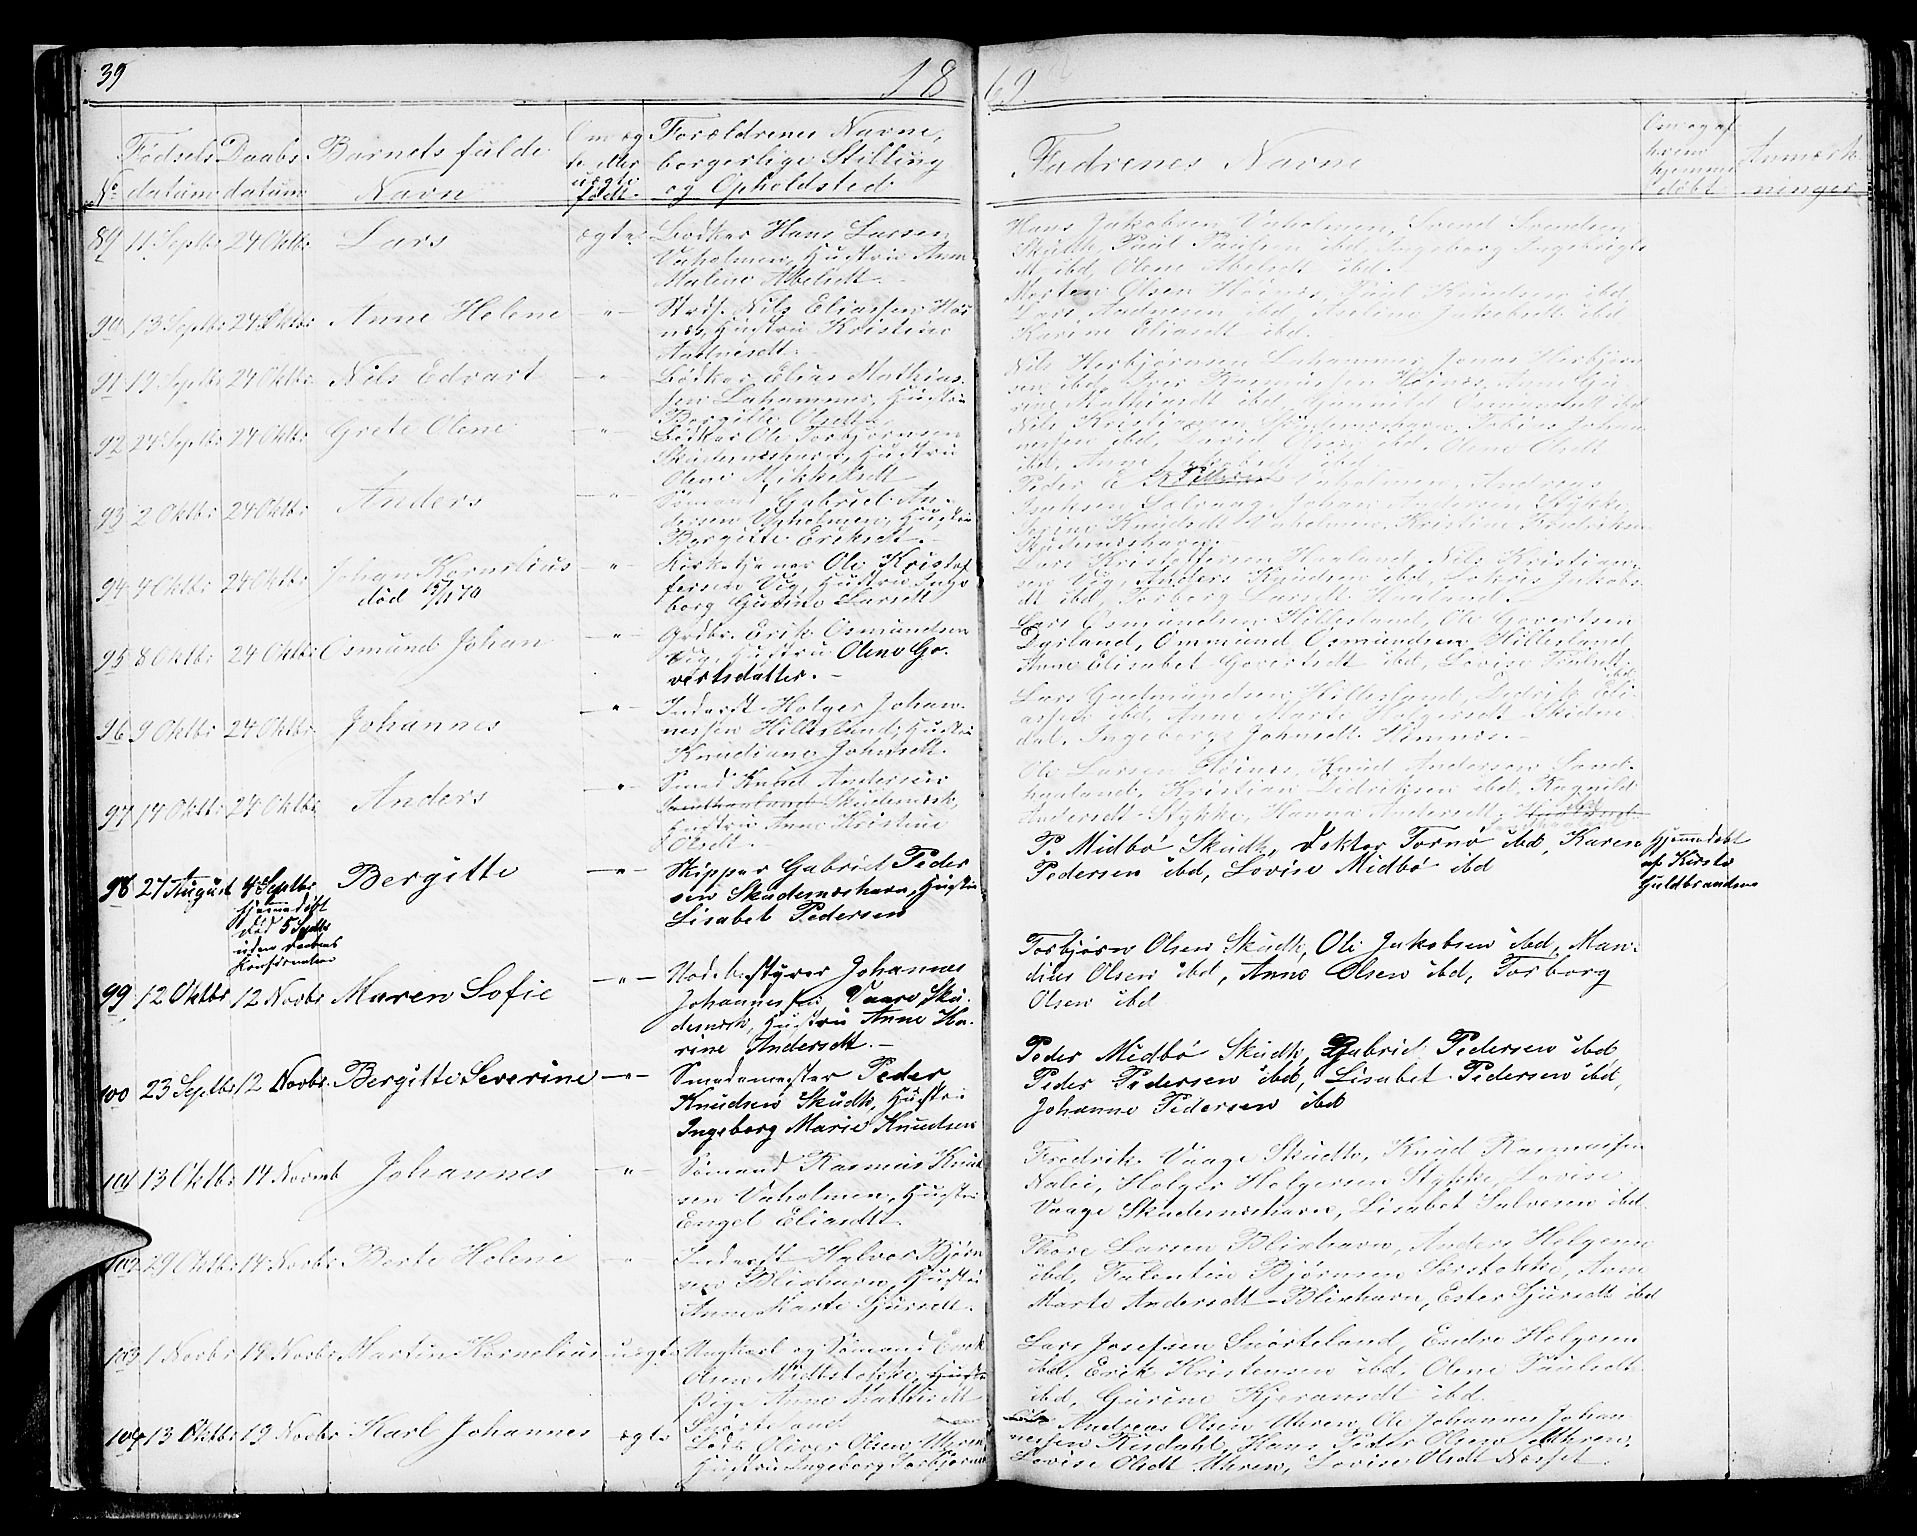 39
18 69.
No
Fødsels datum
Daabs datum
Barnets fulde Navn
Om ægte eller uægte født.
Forældrenes Navne, borgerlige Stilling og Opholdsted
Fadrenes Navne
Om og af hvem hjemme døbt
Anmærkninger
89 11 Septbr 24 Oktbr Lars ægte Bødker Hans Larsen
Vaholmen, Hustru Anne
Malene Abelsdt.
Hans Jakobsen Vaholmen, Svend Svendsen
Skudh, Paul Paulsen ibd, Ingeborg Ingebrigts
ibd, Olene Abelsdt ibd.
90 13 Septbr 24 Oktbr Anne Helene -"- Strdf. Nils Eliassen Høi
næs, Hustru Kristine
Andreasdt.
Morten Olsen Høines, Paul Knudsen ibd,
Lars Andresen ibd, Axeline Jakobsdt ibd
Karine Eliasdt ibd.
91 19 Septbr 24 Oktbr Nils Edvart -"- Bødker Elias Mathias
sen Lahammer, Hustru
Bergitte Olsdtr
Nils Herbjørnsen Lahammer, Jonas Herbjørn
sen ibd, Iver Rasmussen Høines, Anne Gu
rine Mathiasdt ibd, Gunnild Osmundsdt ibd
92 24 Septbr 24 Oktbr Grete Olene -"- Bødker Ole Torbjørnsen
Skudesneshavn, Hustru
Olene Mikkelsdt
Nils Kristiansen Skudesneshavn, Tobias Johan
nessen ibd, David Olsen ibd, Olene Olsdt
ibd, Anne ibd.
93 2 Oktbr 24 Oktbr Anders -"- Sømand Gabriel An-
dersen Vaholmen, Hustru
Bergitte Eriksdt.
Peder E Vaholmen, Andreas
Isaksen Salvaag, Johan Andersen Stykke,
Serine Knudsdt Vaholmen, Kristine Fredriksen
Skudesneshavn.
94 4 Oktbr 24 Oktbr Johan Kornelius -"- Kirketjener Ole Kristof
død 5/1170
fersen Vig, Hustru Inge
borg Gurine Larsdt
Lars Kristoffersen Haaland, Nils Kristian-
sen Vig, Anders Knudsen ibd, Lokris Jakobs
dt ibd, Torborg Larsdt Haaland.
95 8 Oktbr 24 Oktbr Osmund Johan -"- Grdbr. Erik Osmundsen
Vig, Hustru Olene Go-
vertsdatter.
Lars Osmundsen Hillesland, Ole Govertsen
Dyrland, Ommund Osmundsen Hillesland,
Anne Elisabet Govertsdt ibd, Lovise Paulsdt
ibd.
96 9 Oktbr 24 Oktbr Johannes -"- Inderst Holger Johan-
nessen Hillesland, Hustru
Knudiane Johnsdt.
Lars Gudmundsen Hillesland, Didrik Eli-
assen ibd, Anne Marte Holgersdt Skidne
dal, Ingeborg Johnsdt. Himnes.
97 14 Oktbr 24 Oktbr Anders -"- Smed Knud Andersen
Skudesnesh,
Hustru Anne Kristine
Olsdt.
Ole Larsen Høines, Knud Andersen Sand-
haaland, Kristian Didriksen ibd, Ragnild
Andersdt Stykke, Hanna Andersdt,
98 27 August 4 Septbr Bergitte -"- Skipper Gabriel Peder
hjemmedøbt
død 5 Septbr
uden Daabens
Konfirmation
sen Skudesneshavn, Hustru
Lisabet Pedersen
P. Midbø Skudh, Doktor Tornø ibd, Karen
Pedersen ibd, Lovise Midbø ibd
Hjemmedøbt
af Kirste
Guldbrandsen
99 12 Oktbr 12 Novbr Maren Sofie -"- Nodebestyrer Johannes
Johannessen Vaare Sku-
desnesh, Hustru Anne Ka-
rine Andersdt.
Torbjørn Olsen Skudh, Ole Jakobsen ibd, Man-
dius Olsen ibd, Anne Olsen ibd, Torborg
Olsen ibd
100 23 Septbr 12 Novbr. Bergitte Severine -"- Smedemester Peder
Knudsen Skudh, Hustru
Ingeborg Marie Knudsen
Peder Midbø Skudh, Gabriel Pedersen ibd
Peder Pedersen ibd, Lisabet Pedersen ibd,
Johanne Pedersen ibd
101 13 Oktbr 14 Novmb Johannes -"- Sømand Rasmus Knud
sen Vaholmen, Hustru
Engel Eliasdt.
Fredrik Vaage Skudh, Knud Rasmussen
Nalei, Holger Holgersen Stykke, Lovise
Vaage Skudesneshavn, Lisabet Salvesen ibd.
102 29 Oktbr 14 Novbr Berte Helene -"- Inderst Halvor Bjørn
sen Blixhavn, Hustru
Anne Marte Sjursdt.
Thore Larsen Blixhavn, Anders Helgesen
ibd, Falentin Bjørnsen Sørstokke, Anne
Marte Andersdt Blixhavn, Ester Sjursdt ibd
103 1 Novbr 19 Novbr Martin Kornelius uægte Ungkarl og Sømand Enok
Olsen Midtstokke,
Pige Anne Mathisdt
Snørteland
Lars Josefsen Snørteland, Endre Helgesen
ibd, Erik Kristensen ibd, Olene Paulsdt
ibd, Gurine Kjeransdt ibd.
104 13 Oktbr 19 Novbr Karl Johannes ægte Lods Oliver Olsen Uhren
Hustru Ingeborg Torbjørns
Andreas Olsen Uhren, Ole Johannes Johan-
nessen Risdahl, Hans Peder Olsen Uhren,
Lovise Olsdt Uhren, Lovise Olsdt Næsset.